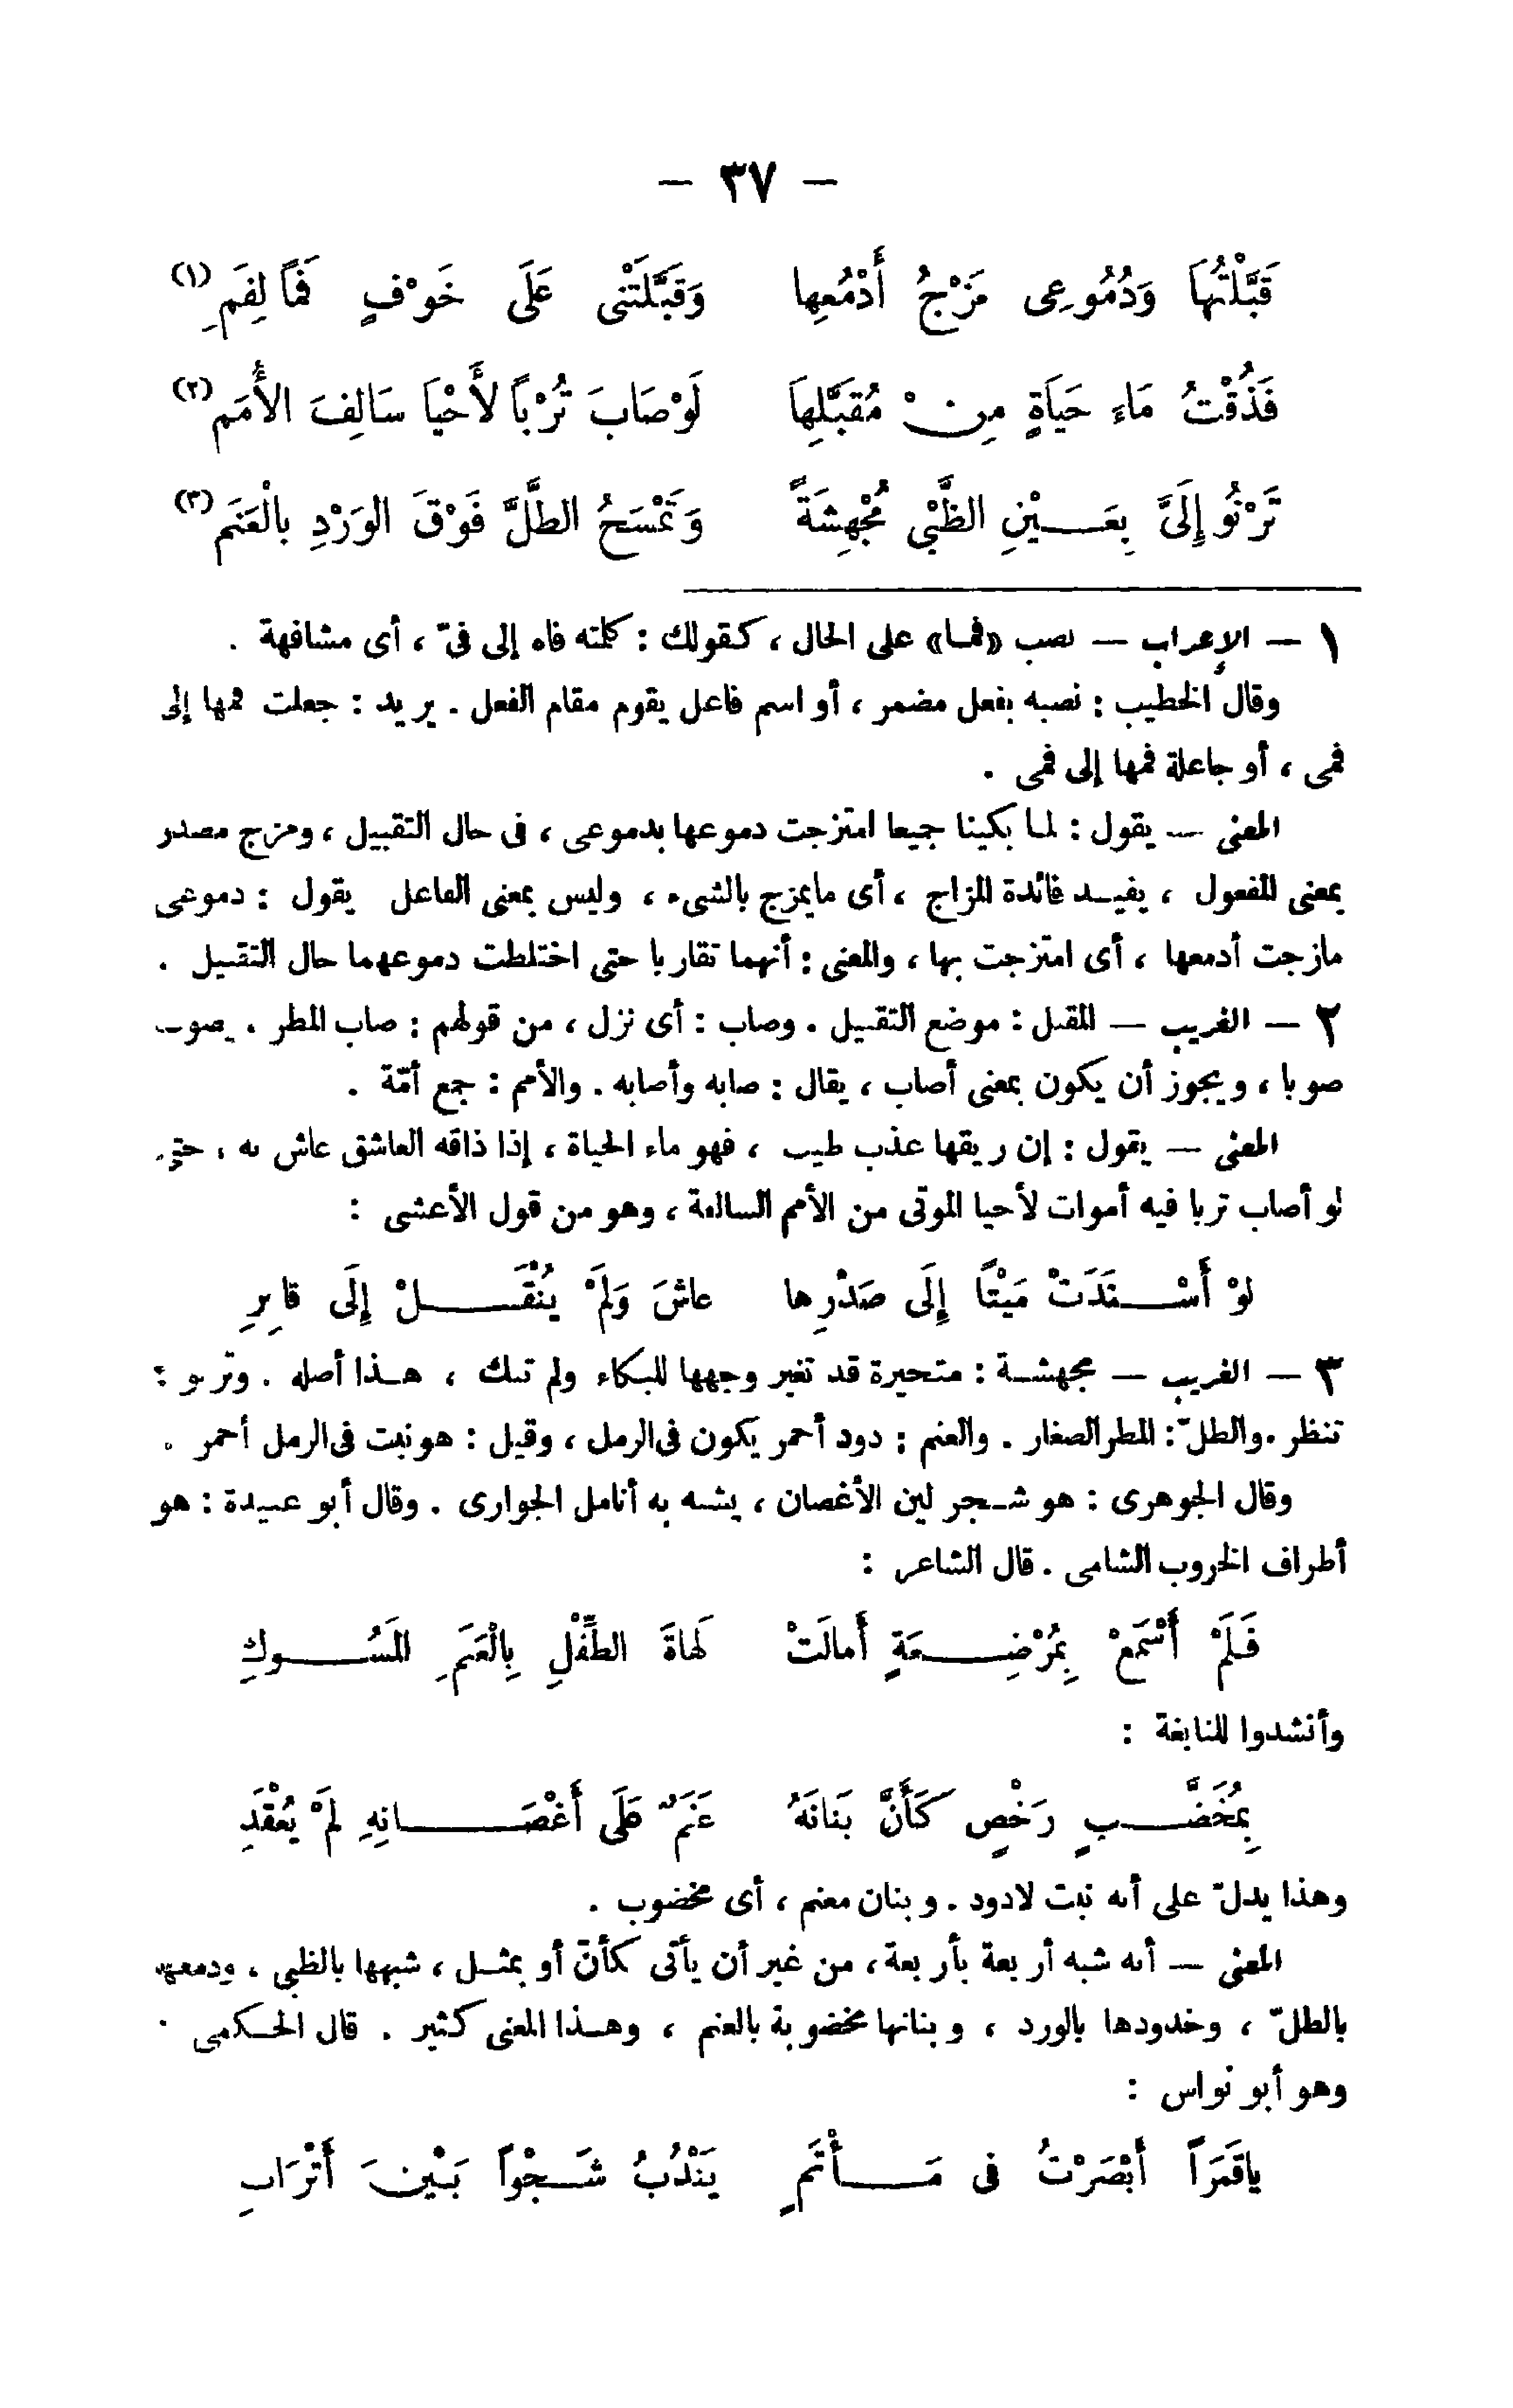 — ٣٧ —
قَبَّلْتُهَا وَدُمُوعِى مَزْجُ أَدْمُعِها وَقَبَّلَتْنِى عَلَى خَوْفٍ فَمًا لِفَمِ (١)
فَذُقْتُ مَاءَ حَيَاةٍ مِنْ مُقَبَّلِهَا لَوْ صَابَ تُرْبًا لَأَحْيَا سَالِفَ الأُمَمِ (٢)
تَرْنُو إِلَىَّ بِعَيْنِ الظَّبْىِ مُجْهِشَةً وَتَمْسَحُ الطَّلَّ فَوْقَ الوَرْدِ بِالْعَنَمِ (٣)
١ — الإعراب — نصب «فما» على الحال ، كقولك : كلمته فاه إلى فىّ ، أى مشافهة .
وقال الخطيب : نصبه بفعل مضمر ، أو اسم فاعل يقوم مقام الفعل . يريد : جعلت فمها إلى
فمى ، أو جاعلة فمها إلى فمى .
المعنى — يقول : لما بكينا جميعا امتزجت دموعها بدموعى ، فى حال التقبيل ، ومزج مصدر
بمعنى المفعول ، يفيد فائدة المزاج ، أى مايمزج بالشىء ، وليس بمعنى الفاعل يقول : دموعى
مازجت أدمعها ، أى امتزجت بها ، والمعنى : أنهما تقاربا حتى اختلطت دموعهما حال التقبيل .
٢ — الغريب — المقبل : موضع التقبيل . وصاب : أى نزل ، من قولهم : صاب المطر . يصوب
صوبا ، ويجوز أن يكون بمعنى أصاب ، يقال : صابه وأصابه . والأمم : جمع أمّة .
المعنى — يقول : إن ريقها عذب طيب ، فهو ماء الحياة ، إذا ذاقه العاشق عاش به ، حتى
لو أصاب تربا فيه أموات لأحيا الموتى من الأمم السالفة ، وهو من قول الأعشى :
لَوْ أَسْنَدَتْ مَيْتًا إِلَى صَدْرِها عاشَ وَلَمْ يُنْقَلْ إِلَى قابِرِ
٣ — الغريب — مجهشة : متحيرة قد تغير وجهها للبكاء ولم تبك ، هذا أصله . وترنو :
تنظر . والطلّ : المطر الصغار . والعنم : دود أحمر يكون فى الرمل ، وقيل : هو نبت فى الرمل أحمر .
وقال الجوهرى : هو شجر لين الأغصان ، يشبه به أنامل الجوارى . وقال أبو عبيدة : هو
أطراف الخروب الشامى . قال الشاعر :
فَلَمْ أَسْمَعْ بِمُرْضِعَةٍ أَمالَتْ لَهاةَ الطِّفْلِ بِالْعَنَمِ المَسُوكِ
وأنشدوا للنابغة :
بِمُخَضَّبٍ رَخْصٍ كَأَنَّ بَنانَهُ عَنَمٌ عَلَى أَغْصَانِهِ لَمْ يُعْقَدِ
وهذا يدلّ على أنه نبت لادود . وبنان معنم ، أى مخضوب .
المعنى — أنه شبه أربعة بأربعة ، من غير أن يأتى كأنّ أو بمثل ، شبهها بالظبى . ودمعها
بالطلّ ، وخدودها بالورد ، وبنانها مخضوبة بالعنم ، وهذا المعنى كثير . قال الحكمى
وهو أبو نواس :
ياقَمَرًا أَبْصَرْتُ فى مَأْتَمٍ يَنْدُبُ شَجْوًا بَيْنَ أَتْرَابِ